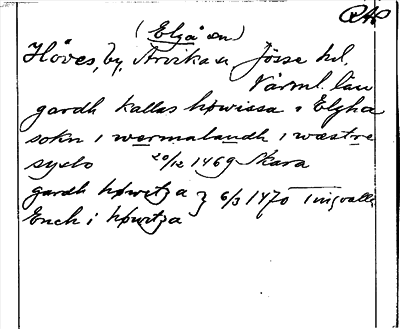 (Elgå sn)
Höves, by, Arvika sn Jösse hd,
Värml. län
gardh kallas høwissa i Elgha
sokn i wermalandh i wæstre
syslo 20/12 1469 Skara
gardh høwitza } 6/3 1470 Tingvalla
Ench i høwitza